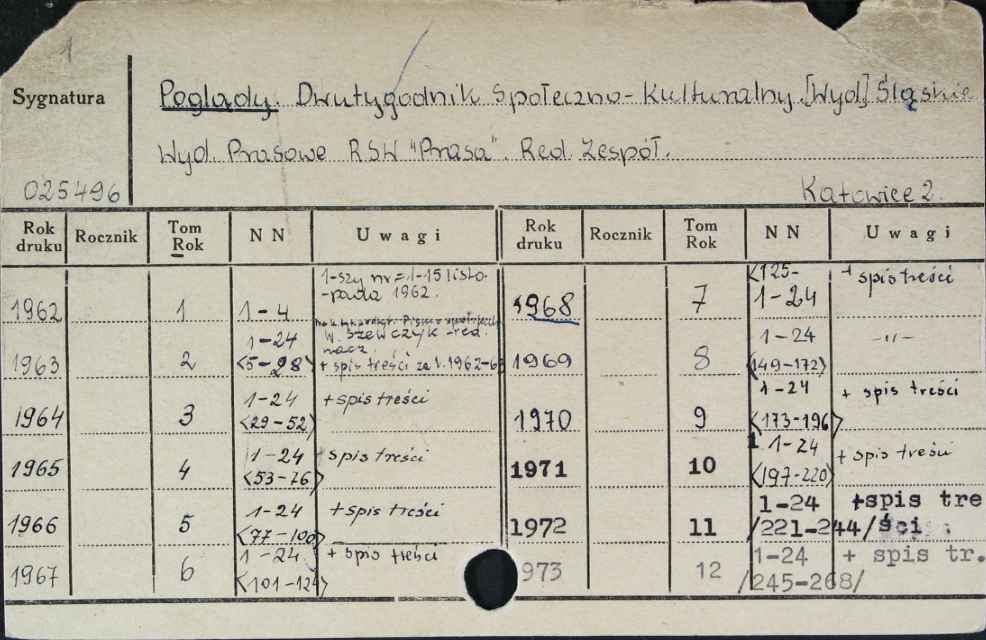 1
Sygnatura
Poglądy. Dwutygodnik Społeczno-Kulturalny. [Wyd] Śląskie
Wyd. Prasowe RSW "Prasa". Red. Zespół.
025496
Katowice 2.
Rok druku Rocznik Tom Rok NN Uwagi Rok druku Rocznik Tom Rok NN Uwagi
1962 1 1-4 1-szy nr = 1-15 listo-pada 1962.
1963 2 1-24 <5-28> W. Szewczyk - red. nacz. + spis treści za r. 1962-63
1964 3 1-24 <29-52> + spis treści
1965 4 1-24 <53-76> spis treści
1966 5 1-24 <77-100> + spis treści
1967 6 1-24 <101-124> + spis treści
1968 7 <125- 1-24 + spis treści
1969 8 1-24 <149-172> -"-
1970 9 1-24 <173-196> + spis treści
1971 10 1-24 <197-220> + spis treści
1972 11 1-24 /221-244/ +spis treści
973 12 1-24 /245-268/ + spis tr.